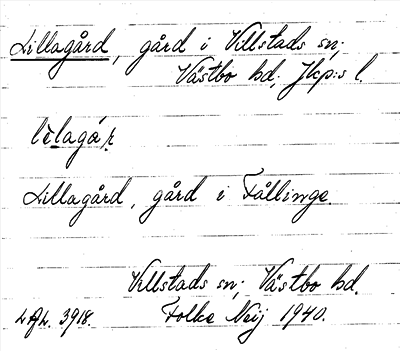 Lillagård, gård i Villstads sn;
Västbo hd; Jkp:s l.
lìlagá ṛ
Lillagård, gård i Fållinge.
Villstads sn; Västbo hd.
3918. Folke Neij 1940.